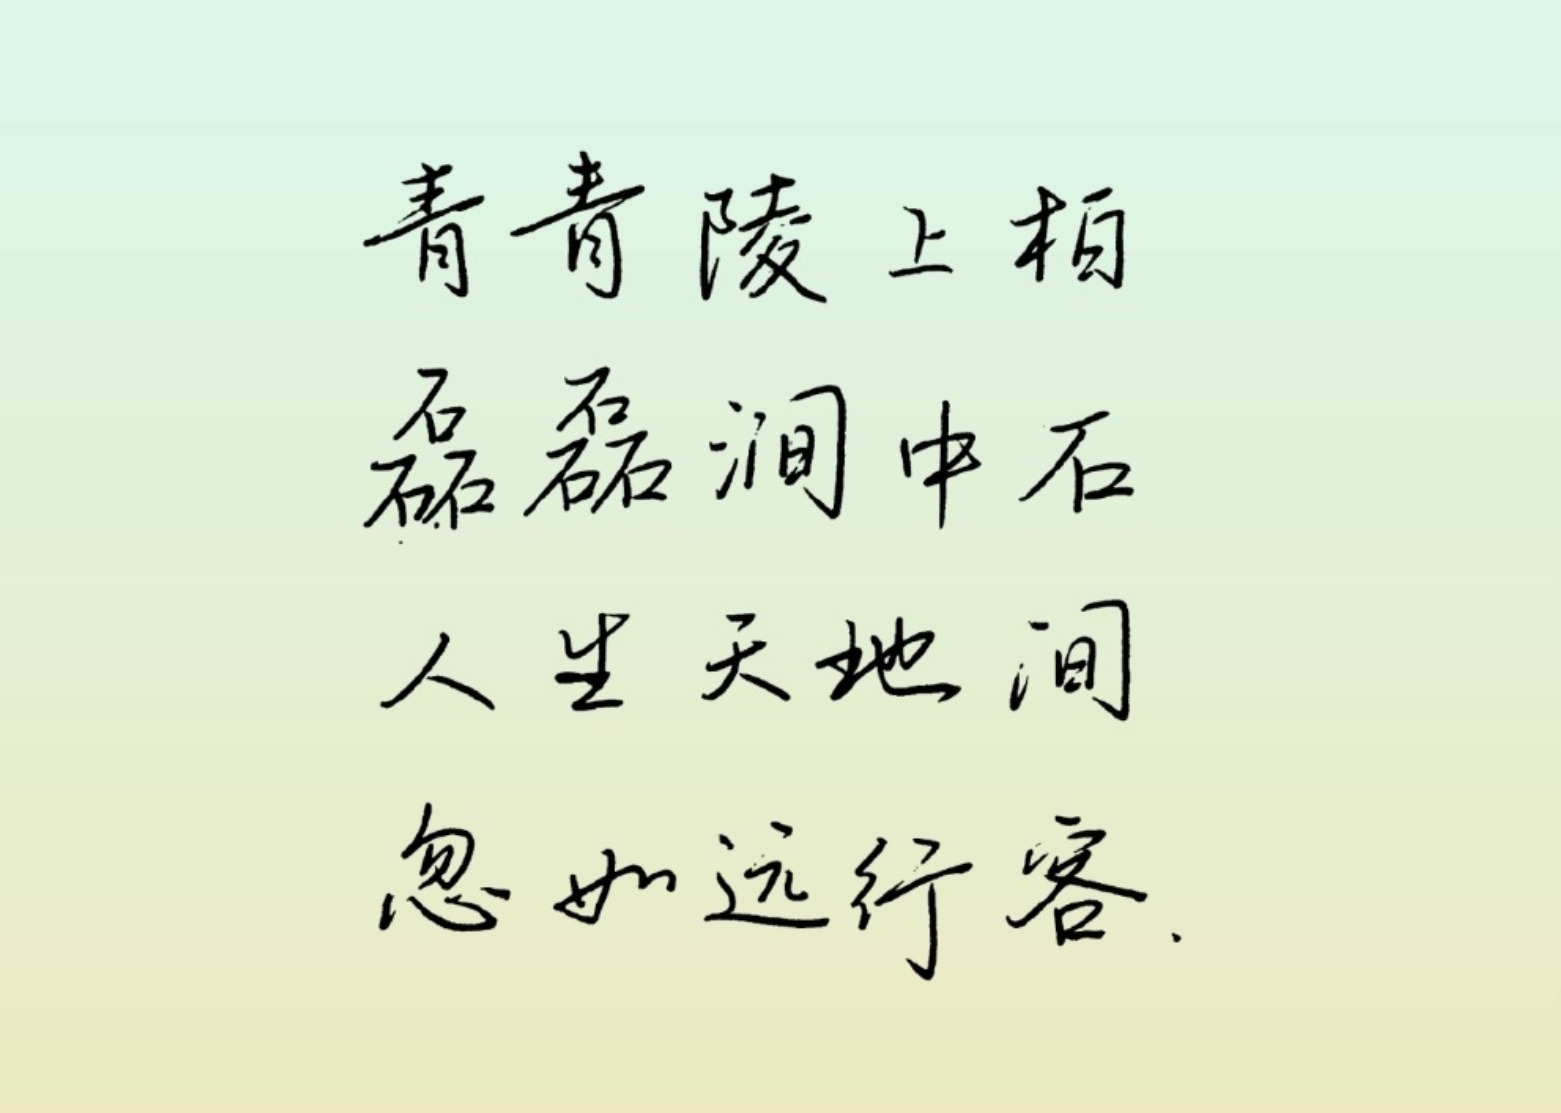 青青陵上柏
磊磊涧中石
人生天地间
忽如远行客.